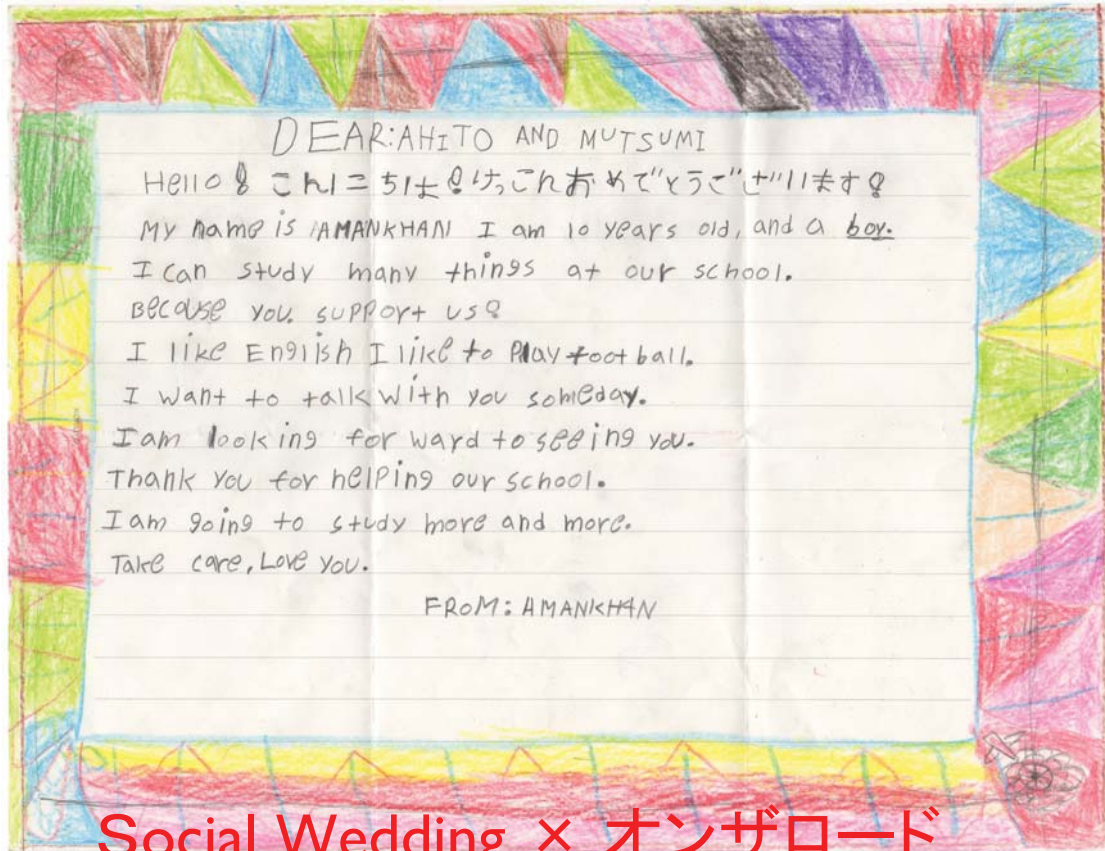 DEAR:AHITO AND MUTSUMI
Hello! こんにちは!けっこんおめでとうございます!
My name is AMANKHAN I am 10 years old, and a boy.
I can study many things at our school.
Because you support us!
I like English I like to Play football.
I want to talk with you someday.
I am looking for ward to seeing you.
Thank you for helping our school.
I am going to study more and more.
Take care, Love you.
FROM: AMANKHAN
Social Wedding × オンザロード